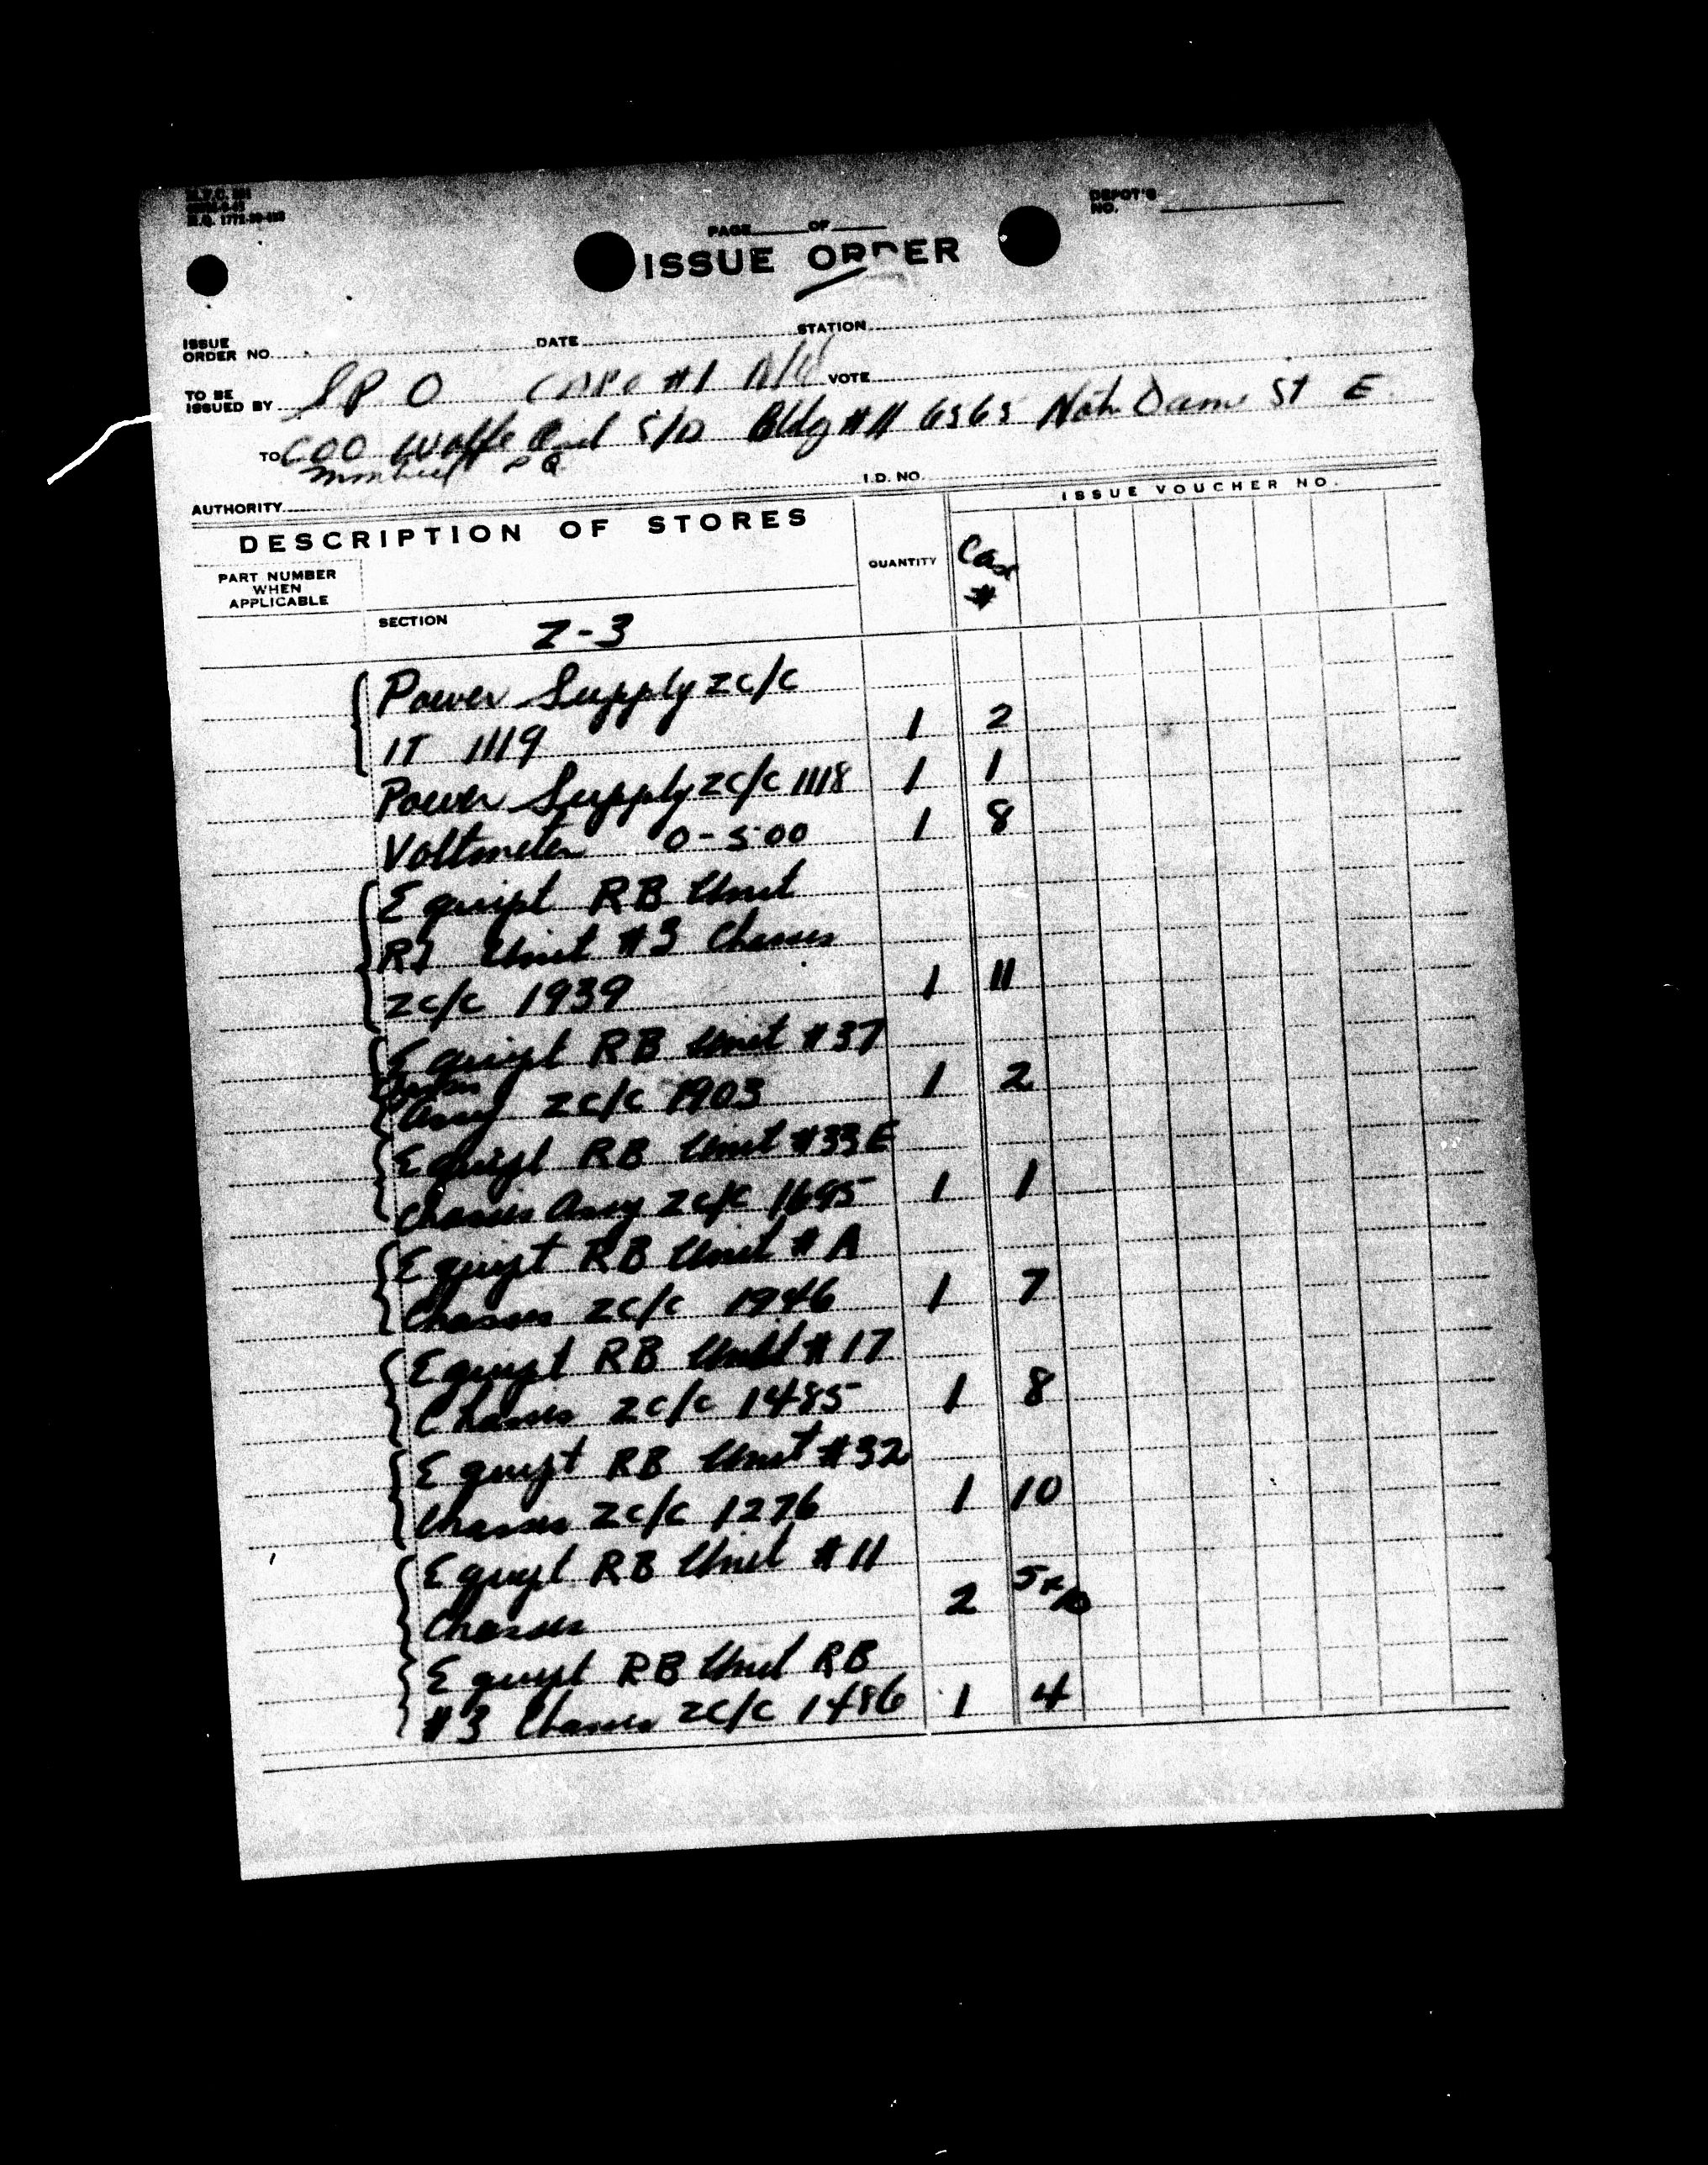 PAGE OF
DEPOT'S
NO.
ISSUE ORDER
ISSUE
ORDER NO. DATE STATION
TO BE
ISSUED BY S P O #1 VOTE
TO COO Wolfe Ord S/D Bldg #11 6565 Notre Dame St E
Montreal P Q
AUTHORITY I.D. NO.
DESCRIPTION OF STORES QUANTITY ISSUE VOUCHER NO.
PART NUMBER
WHEN
APPLICABLE
Case
#
SECTION Z-3
Power Supply ZC/C
IT 1119 1 2
Power Supply ZC/C 1118 1 1
Voltmeter 0-500 1 8
Equipt RB Unit
Unit #3 Chassis
ZC/C 1939 1 11
Equipt RB Unit #37
Assy ZC/C 1903 1 2
Equipt RB Unit #33E
Chassis Assy ZC/C 1695 1 1
Equipt RB Unit # A
Chassis ZC/C 1946 1 7
Equipt RB Unit #17
Chassis ZC/C 1485 1 8
Equipt RB Unit #32
Chassis ZC/C 1276 1 10
Equipt RB Unit #11
Chassis 2
Equipt RB Unit RB
#3 Chassis ZC/C 1486 1 4